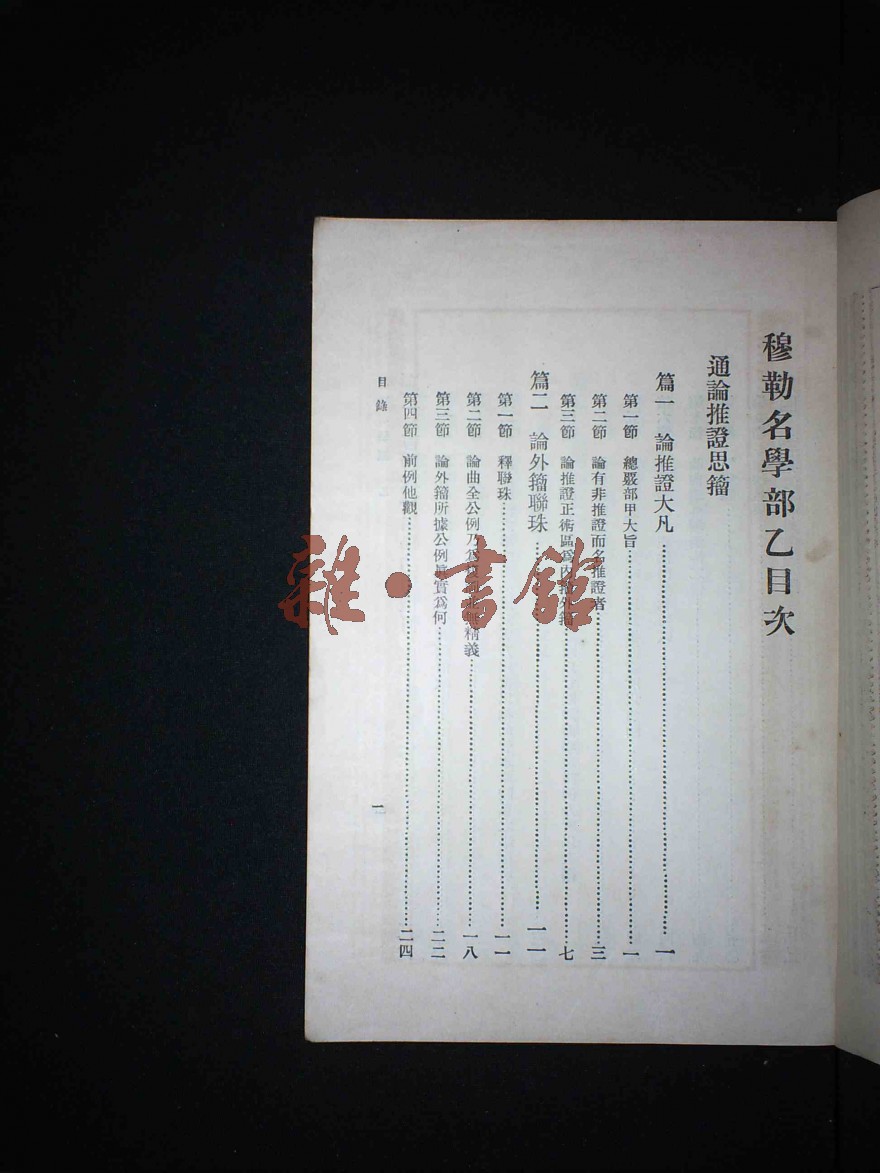 穆勒名學部乙目次
通論推證思籀
篇一 論推證大凡 一
第一節 總覈部甲大旨 一
第二節 論有非推證而名推證者 三
第三節 論推證正術區爲內籀外籀 七
篇二 論外籀聯珠 一一
第一節 釋聯珠 一一
第二節 論曲全公例乃爲 精義 一八
第三節 論外籀所據公例眞實爲何 二二
第四節 前例他觀 二四
目錄
一
雜·書館